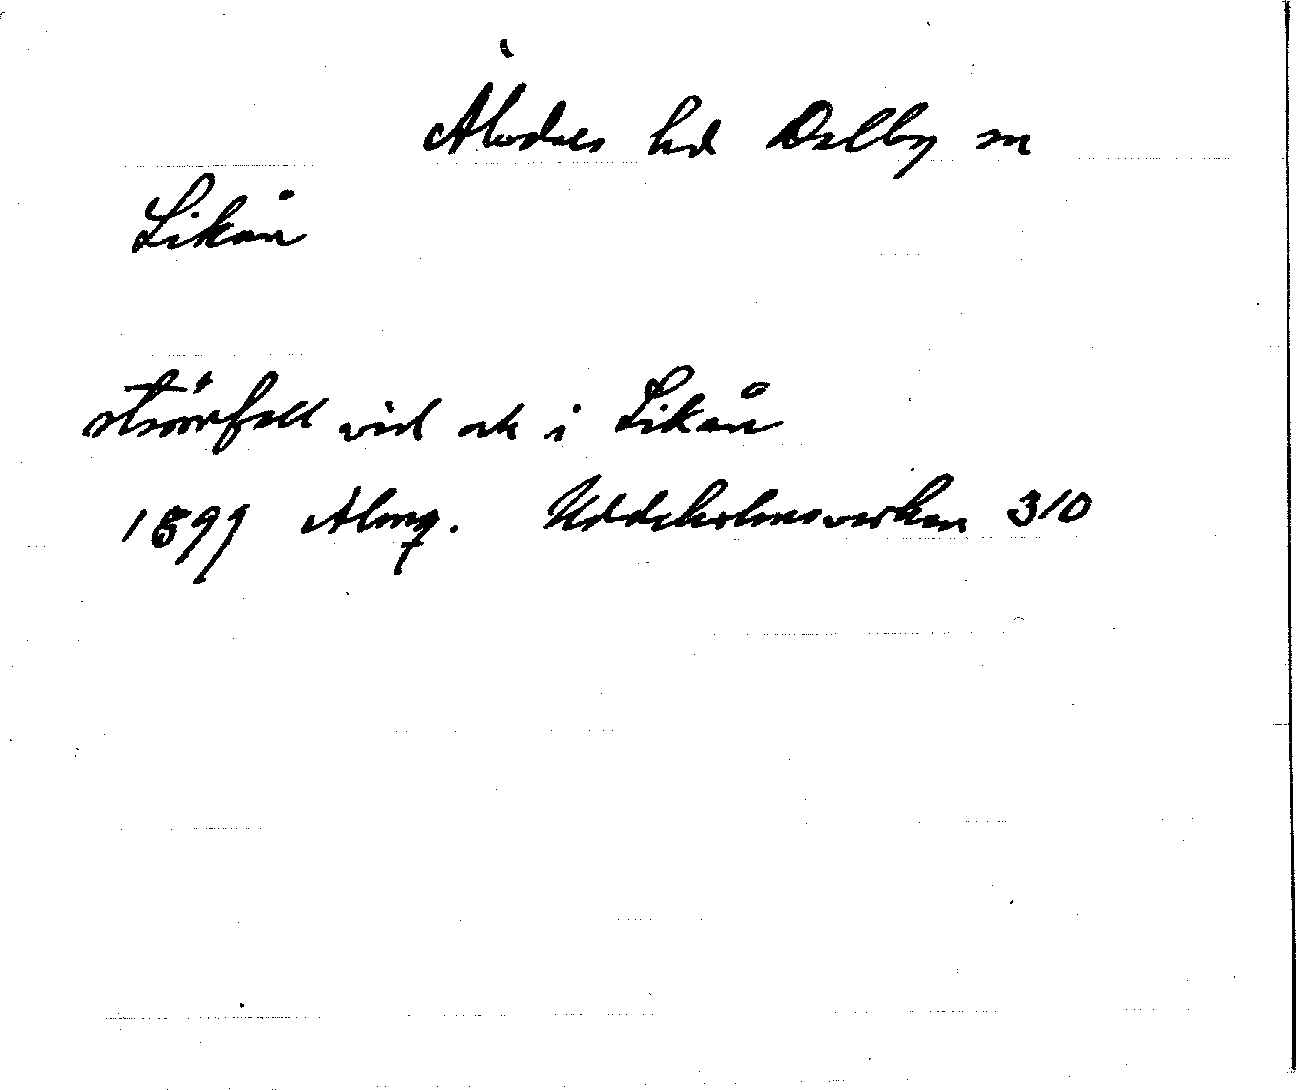 Älvdals hd Dalby sn
Likån
strömfall vid och i Likån
1899 Almq. Uddeholmsverken 310